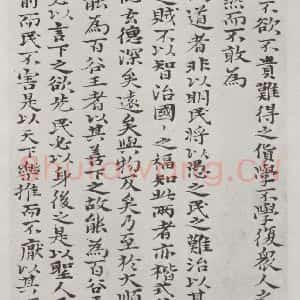 不欲不貴難得之貨學不學復衆人之
然而不敢為
道者非以明民將以愚之民之難治以其
之賊不以知治國々之福知此兩者亦楷式
玄德深矣遠矣與物反矣乃至於大順
能為百谷王者以其善下之故能為百谷
必以言下之欲先民必以身後之是以聖人
前而民不害是以天下樂推而不厭以其
Shufawang.CN